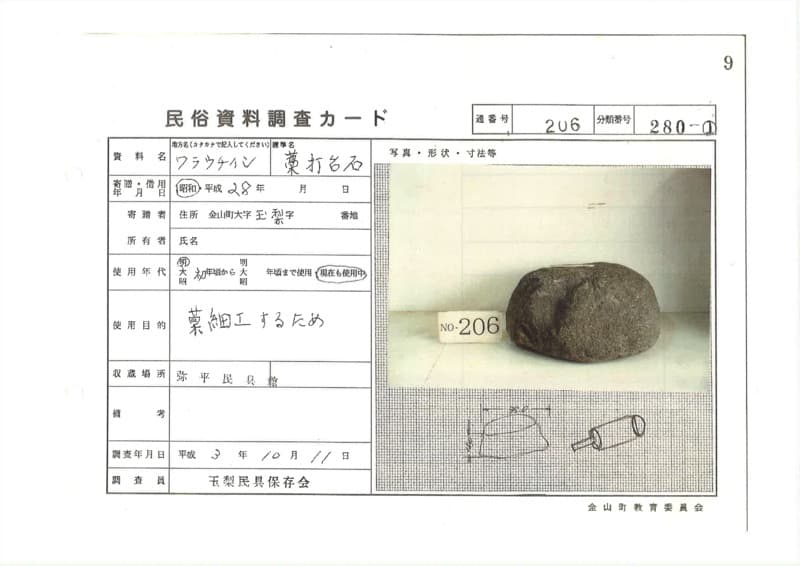 9
民俗資料調査カード
通番号 206 分類番号 280-①
資料名 地方名(カタカナで記入してください) ワラウチイシ 標準名 藁打台石
寄贈・借用年月日 昭和・平成 28年 月 日
寄贈者 住所 金山町大字玉梨字 番地
所有者 氏名
使用年代 明大昭 初年頃から 明大昭 年頃まで使用・現在も使用中
使用目的 藁細工するため
収蔵場所 弥平民具館
備考
調査年月日 平成 3年 10月 11日
調査員 玉梨民具保存会
写真・形状・寸法等
NO-206
金山町教育委員会